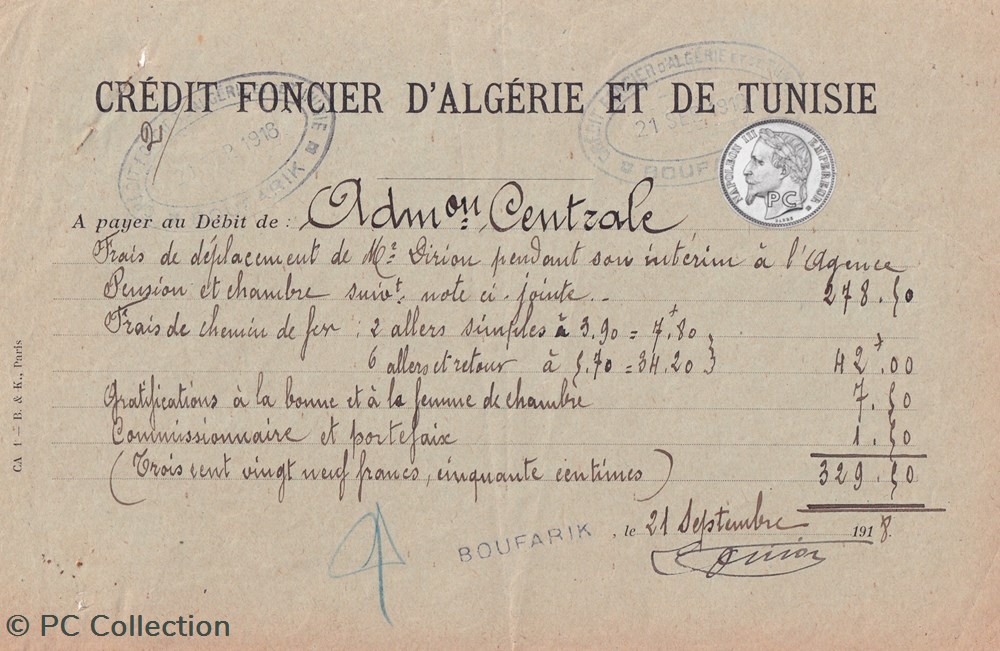 CRÉDIT FONCIER D'ALGÉRIE ET DE TUNISIE
2
21 1918
BOUFARIK
NAPOLEON III EMPEREUR
PC
A payer au Débit de : Admon Centrale
Frais de déplacement de Mr Dirion pendant son intérim à l'Agence
Pension et chambre suivt note ci-jointe.. 278.50
Frais de chemin de fer : 2 allers simples à 3.90 = 7.80
6 allers et retour à 5.70 = 34.20 } 42.00
Gratifications à la bonne et à la femme de chambre 7.50
Commissionnaire et portefaix 1.50
(Trois cent vingt neuf francs, cinquante centimes) 329.50
BOUFARIK, le 21 Septembre 1918.
CA 1 – B. & K., Paris
© PC Collection